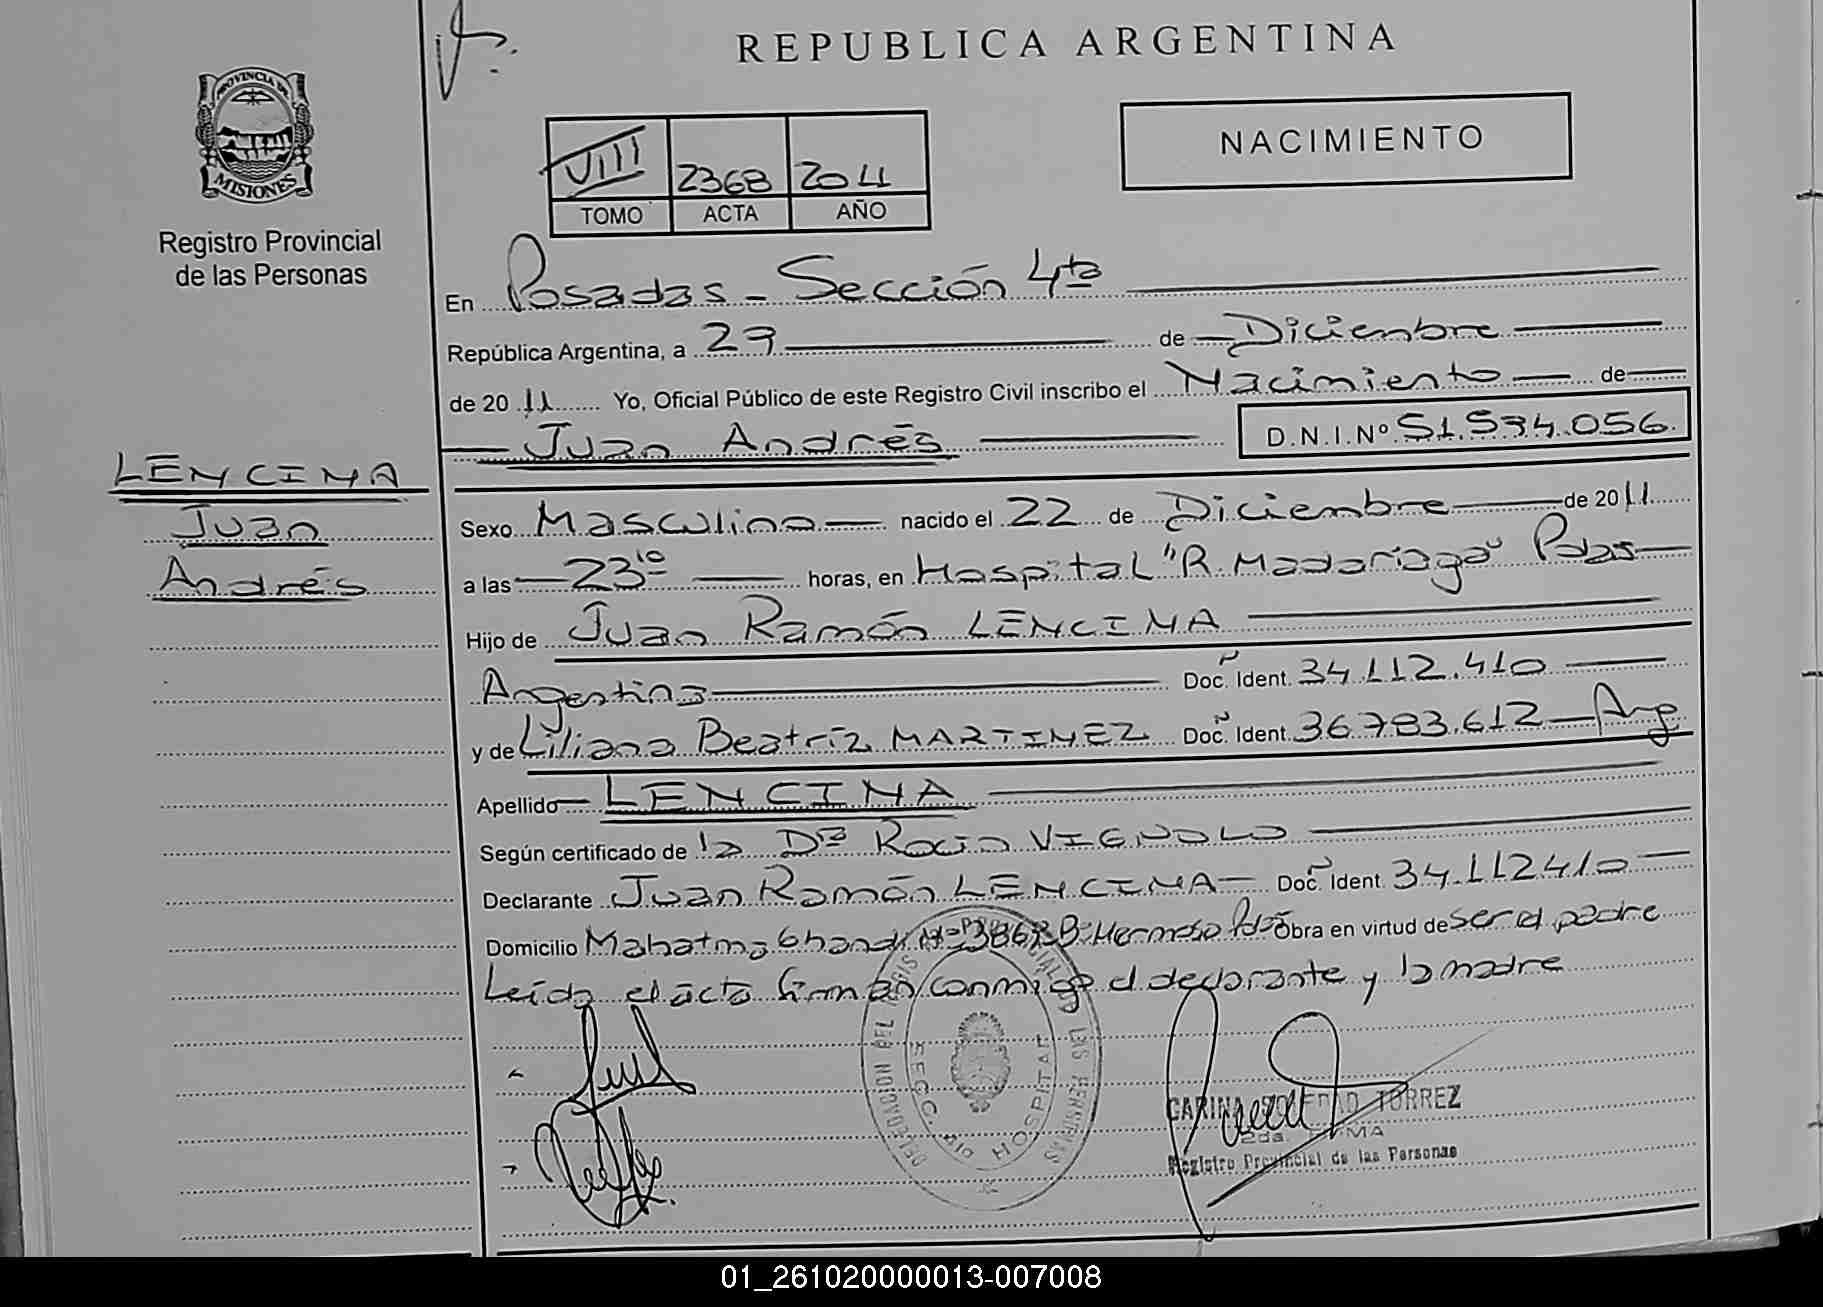 REPUBLICA ARGENTINA
PROVINCIA DE
MISIONES
Registro Provincial
de las Personas
NACIMIENTO
VIII 2368 2011
TOMO ACTA AÑO
En Posadas - Sección 4ta
República Argentina, a 29 de Diciembre
de 2011 Yo, Oficial Público de este Registro Civil inscribo el Nacimiento de
Juan Andrés D.N.I.Nº 51.534.056
LENCINA
Juan
Andrés
Sexo Masculino nacido el 22 de Diciembre de 2011
a las 23 10 horas, en Hospital "R. Madariaga" Pdas
Hijo de Juan Ramón LENCINA
Argentino Doc. Ident. 34.112.410
y de Liliana Beatríz MARTINEZ Doc. Ident. 36.783.612 Arg
Apellido LENCINA
Según certificado de la Dra Rocio VIGNOLO
Declarante Juan Ramón LENCINA Doc. Ident. 34.112410
Domicilio Mahatma Ghandi Nº 3867 Bº Hermoso Obra en virtud de ser el padre
Leída el acta firman conmigo el declarante y la madre
DELEGACION DEL REGISTRO PROVINCIAL DE LAS PERSONAS
SECC. 4ta HOSPITAL
CARINA SOLEDAD TORREZ
2da. FIRMA
Registro Provincial de las Personas
01_261020000013-007008